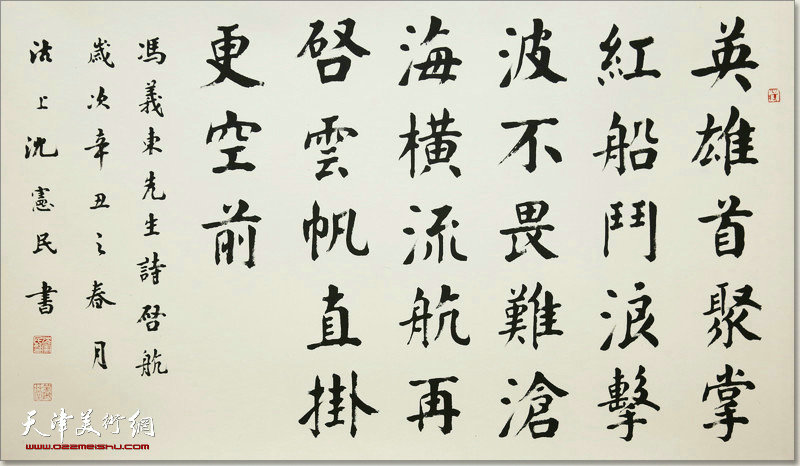 英雄首聚掌
紅船鬥浪擊
波不畏難滄
海橫流航再
啓雲帆直掛
更空前
馮義東先生詩啓航
歲次辛丑之春月
沽上沈憲民書
天津美術網
www.022meishu.com